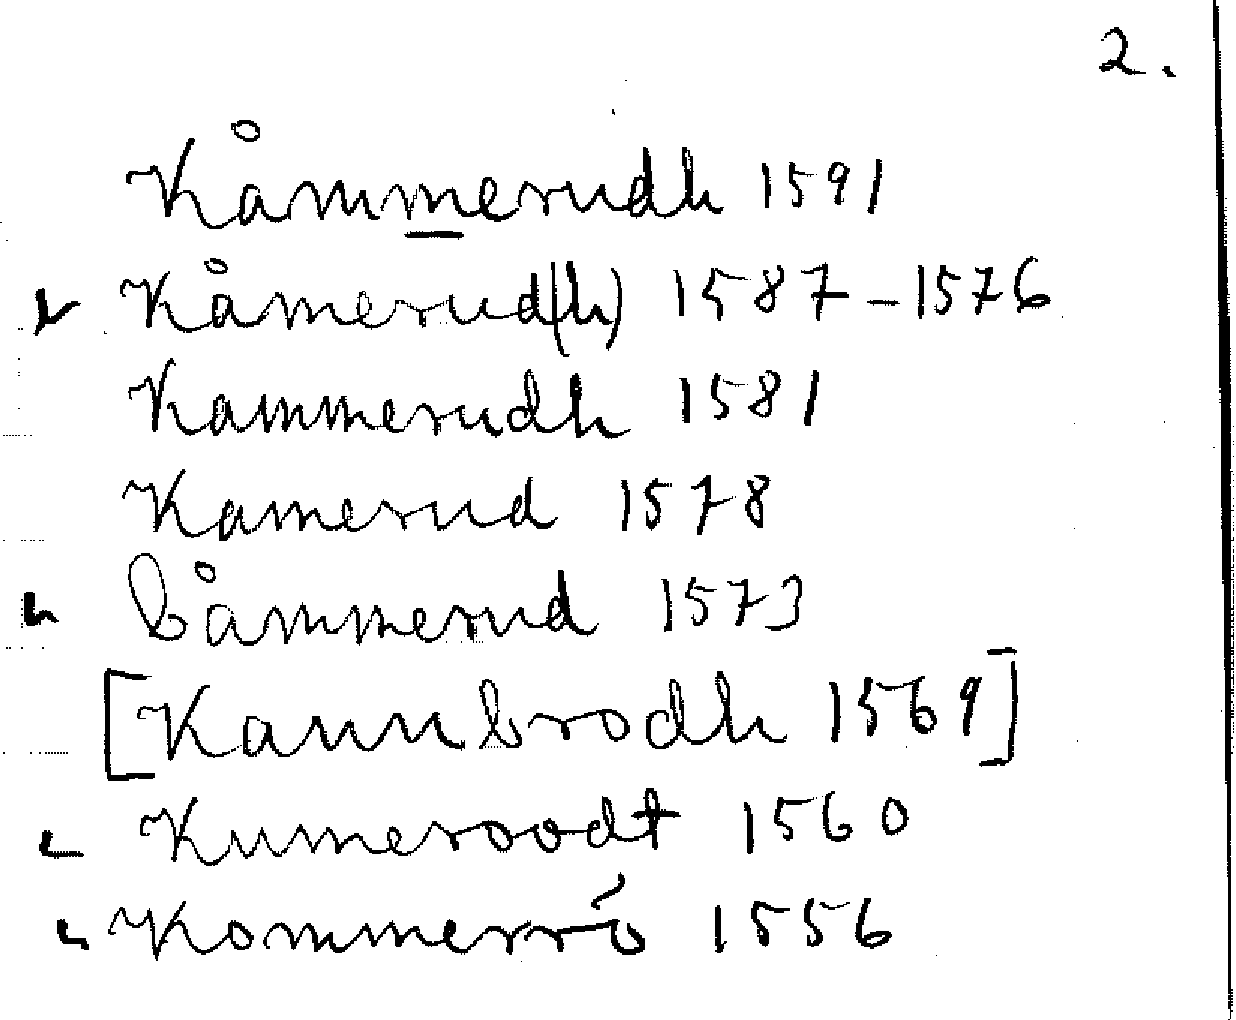 2.
Kåmmerudh 1591
Kåmerud(h) 1587-1576
Kammerudh 1581
Kamerud 1578
Cåmmerud 1573
[Kannbrodh 1569]
Kumeroodt 1560
Kommerró 1556